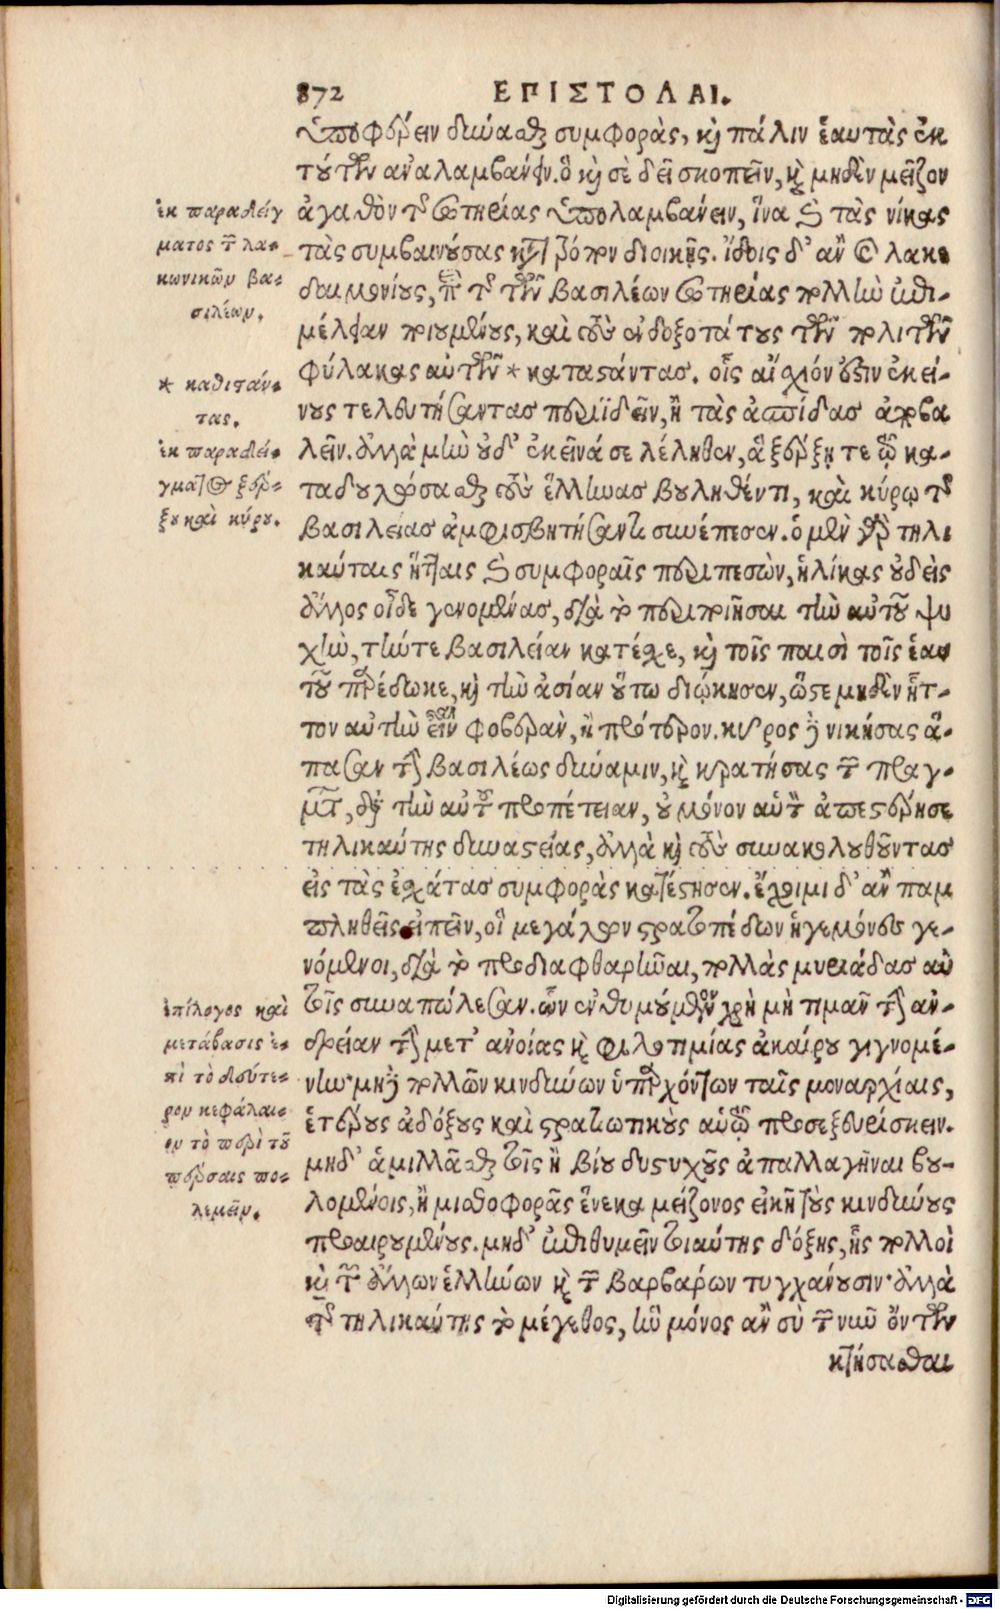 872 ΕΠΙΣΤΟΛΑΙ.
ὑποφέρειν δύνασθαι συμφορὰς, καὶ πάλιν ἑαυτὰς ἐκ
τούτων ἀναλαμβάνειν. ὃ καὶ σὲ δεῖ σκοπεῖν, καὶ μηδὲν μεῖζον
ἀγαθὸν τῆς σωτηρίας ὑπολαμβάνειν, ἵνα καὶ τὰς νίκας
τὰς συμβαινούσας κατὰ τρόπον διοικῇς. ἴδοις δ' ἂν καὶ λακε
δαιμονίους, περὶ τῆς τῶν βασιλέων σωτηρίας πολλὴν ἐπι-
μέλειαν ποιουμένους, καὶ τοὺς ἐνδοξοτάτους τῶν πολιτῶν
φύλακας αὐτῶν * καταστάντας. οἷς αἴσχιόν ἐστιν ἐκεί-
νους τελευτήσαντας περιϊδεῖν, ἢ τὰς ἀσπίδας ἀποβα
λεῖν. ἀλλὰ μὴν οὐδ' ἐκεῖνά σε λέληθεν, ἃ ξέρξῃ τε τῷ κα-
ταδουλώσασθαι τοὺς ἕλληνας βουληθέντι, καὶ κύρῳ τῆς
βασιλείας ἀμφισβητήσαντι συνέπεσεν. ὁ μὲν γὰρ τηλι
καύταις ἥτταις καὶ συμφοραῖς περιπεσὼν, ἡλίκας οὐδεὶς
ἄλλος οἶδε γενομένας, διὰ τὸ περιποιῆσαι τὴν αὐτοῦ ψυ
χὴν, τήν τε βασιλείαν κατέσχε, καὶ τοῖς παισὶ τοῖς ἑαυ
τοῦ παρέδωκε, καὶ τὴν ἀσίαν οὕτω διῴκησεν, ὥστε μηδὲν ἧτ-
τον αὐτὴν εἶναι φοβερὰν, ἢ πρότερον. κῦρος δὲ νικήσας ἅ-
πασαν τὴν βασιλέως δύναμιν, καὶ κρατήσας τῶν πραγ-
μάτων, διὰ τὴν αὐτοῦ προπέτειαν, οὐ μόνον αὑτὸν ἀπεστέρησε
τηλικαύτης δυναστείας, ἀλλὰ καὶ τοὺς συνακολουθοῦντας
εἰς τὰς ἐσχάτας συμφορὰς κατέστησεν. ἔχοιμι δ' ἂν παμ
πληθεῖς εἰπεῖν, οἳ μεγάλων στρατοπέδων ἡγεμόνες γε-
νόμενοι, διὰ τὸ προδιαφθαρῆναι, πολλὰς μυριάδας αὑ
τοῖς συναπώλεσαν. ὧν ἐνθυμούμενον χρὴ μὴ τιμᾶν τὴν ἀν-
δρείαν τὴν μετ' ἀνοίας καὶ φιλοτιμίας ἀκαίρου γιγνομέ-
νην· μηδὲ πολλῶν κινδύνων ὑπαρχόντων ταῖς μοναρχίαις,
ἑτέρους ἀδόξους καὶ στρατιωτικοὺς αὑτῷ προσεξευρίσκειν.
μηδ' ἁμιλλᾶσθαι τοῖς ἢ βίου δυστυχοῦς ἀπαλλαγῆναι βου-
λομένοις, ἢ μισθοφορᾶς ἕνεκα μείζονος εἰκῇ τοὺς κινδύνους
προαιρουμένους. μηδ' ἐπιθυμεῖν τοιαύτης δόξης, ἧς πολλοὶ
καὶ τῶν ἄλλων ἑλλήνων καὶ τῶν βαρβάρων τυγχάνουσιν· ἀλλὰ
τῆς τηλικαύτης τὸ μέγεθος, ἣν μόνος ἂν σὺ τῶν νῦν ὄντων
κτήσασθαι
ἐκ παραδείγ
ματος τῶν λα-
κωνικῶν βα-
σιλέων.
* καθιστάν-
τας.
ἐκ παραδεί-
γματος ξέρ-
ξου καὶ κύρου.
ἐπίλογος καὶ
μετάβασις ἐ-
πὶ τὸ δεύτε-
ρον κεφάλαι-
ον τὸ περὶ τοῦ
πέρσαις πο-
λεμεῖν.
Digitalisierung gefördert durch die Deutsche Forschungsgemeinschaft - DFG